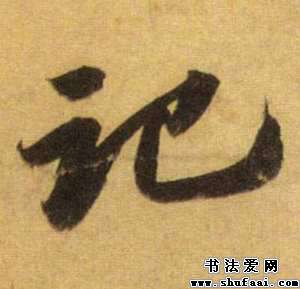 記
书法爱网
www.shufaai.com